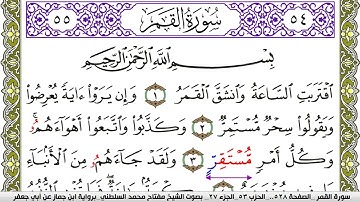 ٥٥ سُورَةُ القَمَر ٥٤
بِسْمِ اللَّهِ الرَّحْمَٰنِ الرَّحِيمِ
اقْتَرَبَتِ السَّاعَةُ وَانشَقَّ الْقَمَرُ ١ وَإِن يَرَوْا ءَايَةً يُعْرِضُوا
وَيَقُولُوا سِحْرٌ مُّسْتَمِرٌّ ٢ وَكَذَّبُوا وَاتَّبَعُوا أَهْوَاءَهُمُ
وَكُلُّ أَمْرٍ مُّسْتَقِرٍّ ٣ وَلَقَدْ جَاءَهُمُ مِنَ الْأَنۢبَاءِ
سورة القمر الصفحة ٥٢٨... الحزب ٥٣ الجزء ٢٧ بصوت الشيخ مفتاح محمد السلطني برواية ابن جماز عن أبي جعفر